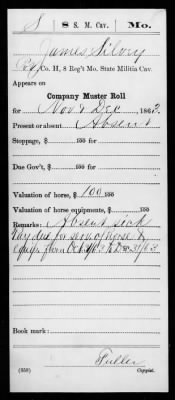 S 8 S. M. Cav. Mo.
James Silvey
Pvt, Co. H, 8 Reg't Mo. State Militia Cav.
Appears on
Company Muster Roll
for Nov & Dec, 1863.
Present or absent Absent
Stoppage, $ 100 for
Due Gov't, $ 100 for
Valuation of horse, $ 100 100
Valuation of horse equipments, $ 100
Remarks: Absent sick
Pay due for use of horse &
equip. from Oct 31/63 to Dec 31/63
Book mark:
Fuller
(358) Copyist.